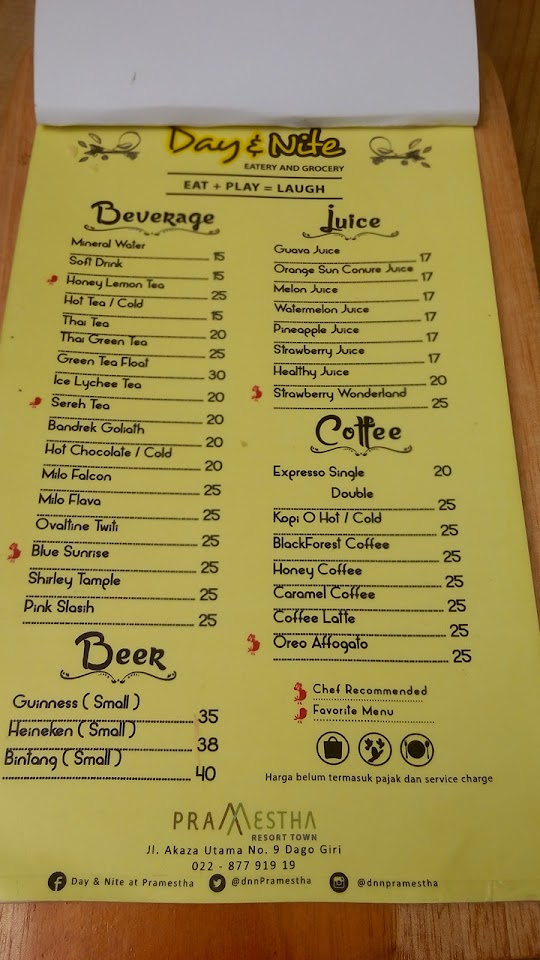 Day & Nite
EATERY AND GROCERY
EAT + PLAY = LAUGH
Beverage
Mineral Water 15
Soft Drink 15
Honey Lemon Tea 25
Hot Tea / Cold 15
Thai Tea 20
Thai Green Tea 25
Green Tea Float 30
Ice Lychee Tea 20
Sereh Tea 20
Bandrek Goliath 20
Hot Chocolate / Cold 20
Milo Falcon 25
Milo Flava 25
Ovaltine Twiti 25
Blue Sunrise 25
Shirley Tample 25
Pink Slasih 25
Beer
Guinness ( Small ) 35
Heineken ( Small ) 38
Bintang ( Small ) 40
Juice
Guava Juice 17
Orange Sun Conure Juice 17
Melon Juice 17
Watermelon Juice 17
Pineapple Juice 17
Strawberry Juice 17
Healthy Juice 20
Strawberry Wonderland 25
Coffee
Expresso Single 20
Double 25
Kopi O Hot / Cold 25
BlackForest Coffee 25
Honey Coffee 25
Caramel Coffee 25
Coffee Latte 25
Oreo Affogato 25
Chef Recommended
Favorite Menu
Harga belum termasuk pajak dan service charge
PRAMESTHA
RESORT TOWN
Jl. Akaza Utama No. 9 Dago Giri
022 - 877 919 19
Day & Nite at Pramestha @dnnPramestha @dnnpramestha